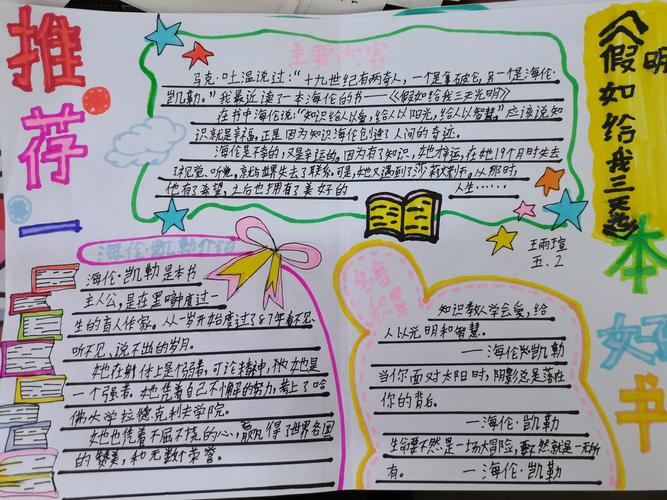 推荐一本好书
《假如给我三天光明
主要内容
马克·吐温说过:“十九世纪有两奇人,一个是拿破仑,另一个是海伦·
凯勒。”我最近读了一本海伦的书——《假如给我三天光明》
在书中海伦说:“知识给人以爱,给人以阳光,给人以智慧。”应该说知
识就是幸福,正是因为知识海伦创造了人间的奇迹。
海伦是不幸的,又是幸运的,因为有了知识,她幸运,在她19个月时失去
了视觉、听觉,与世界失去了联系,可是,她又遇到了沙莉文老师。从那时,
他有了希望,之后也拥有了美好的 人生……
王雨瑄
五、2
海伦·凯勒介绍
海伦·凯勒是本书
主人公,是在黑暗中度过一
生的盲人作家。从一岁开始度过了87年看不见、
听不见、说不出的岁月。
她在身体上是个弱者,可论精神,她是
一个强者。她凭着自己不懈的努力,考上了哈
佛大学拉德克利夫学院。
她也凭着不屈不挠的心,赢得了世界各国
的赞美,和无数个荣誉。
名言积累
知识教人学会爱,给
人以光明和智慧。
——海伦·凯勒
当你面对太阳时,阴影总是落在
你的背后。
——海伦·凯勒
生命要不然是一场大冒险,要么就是一无所
有。 —海伦·凯勒